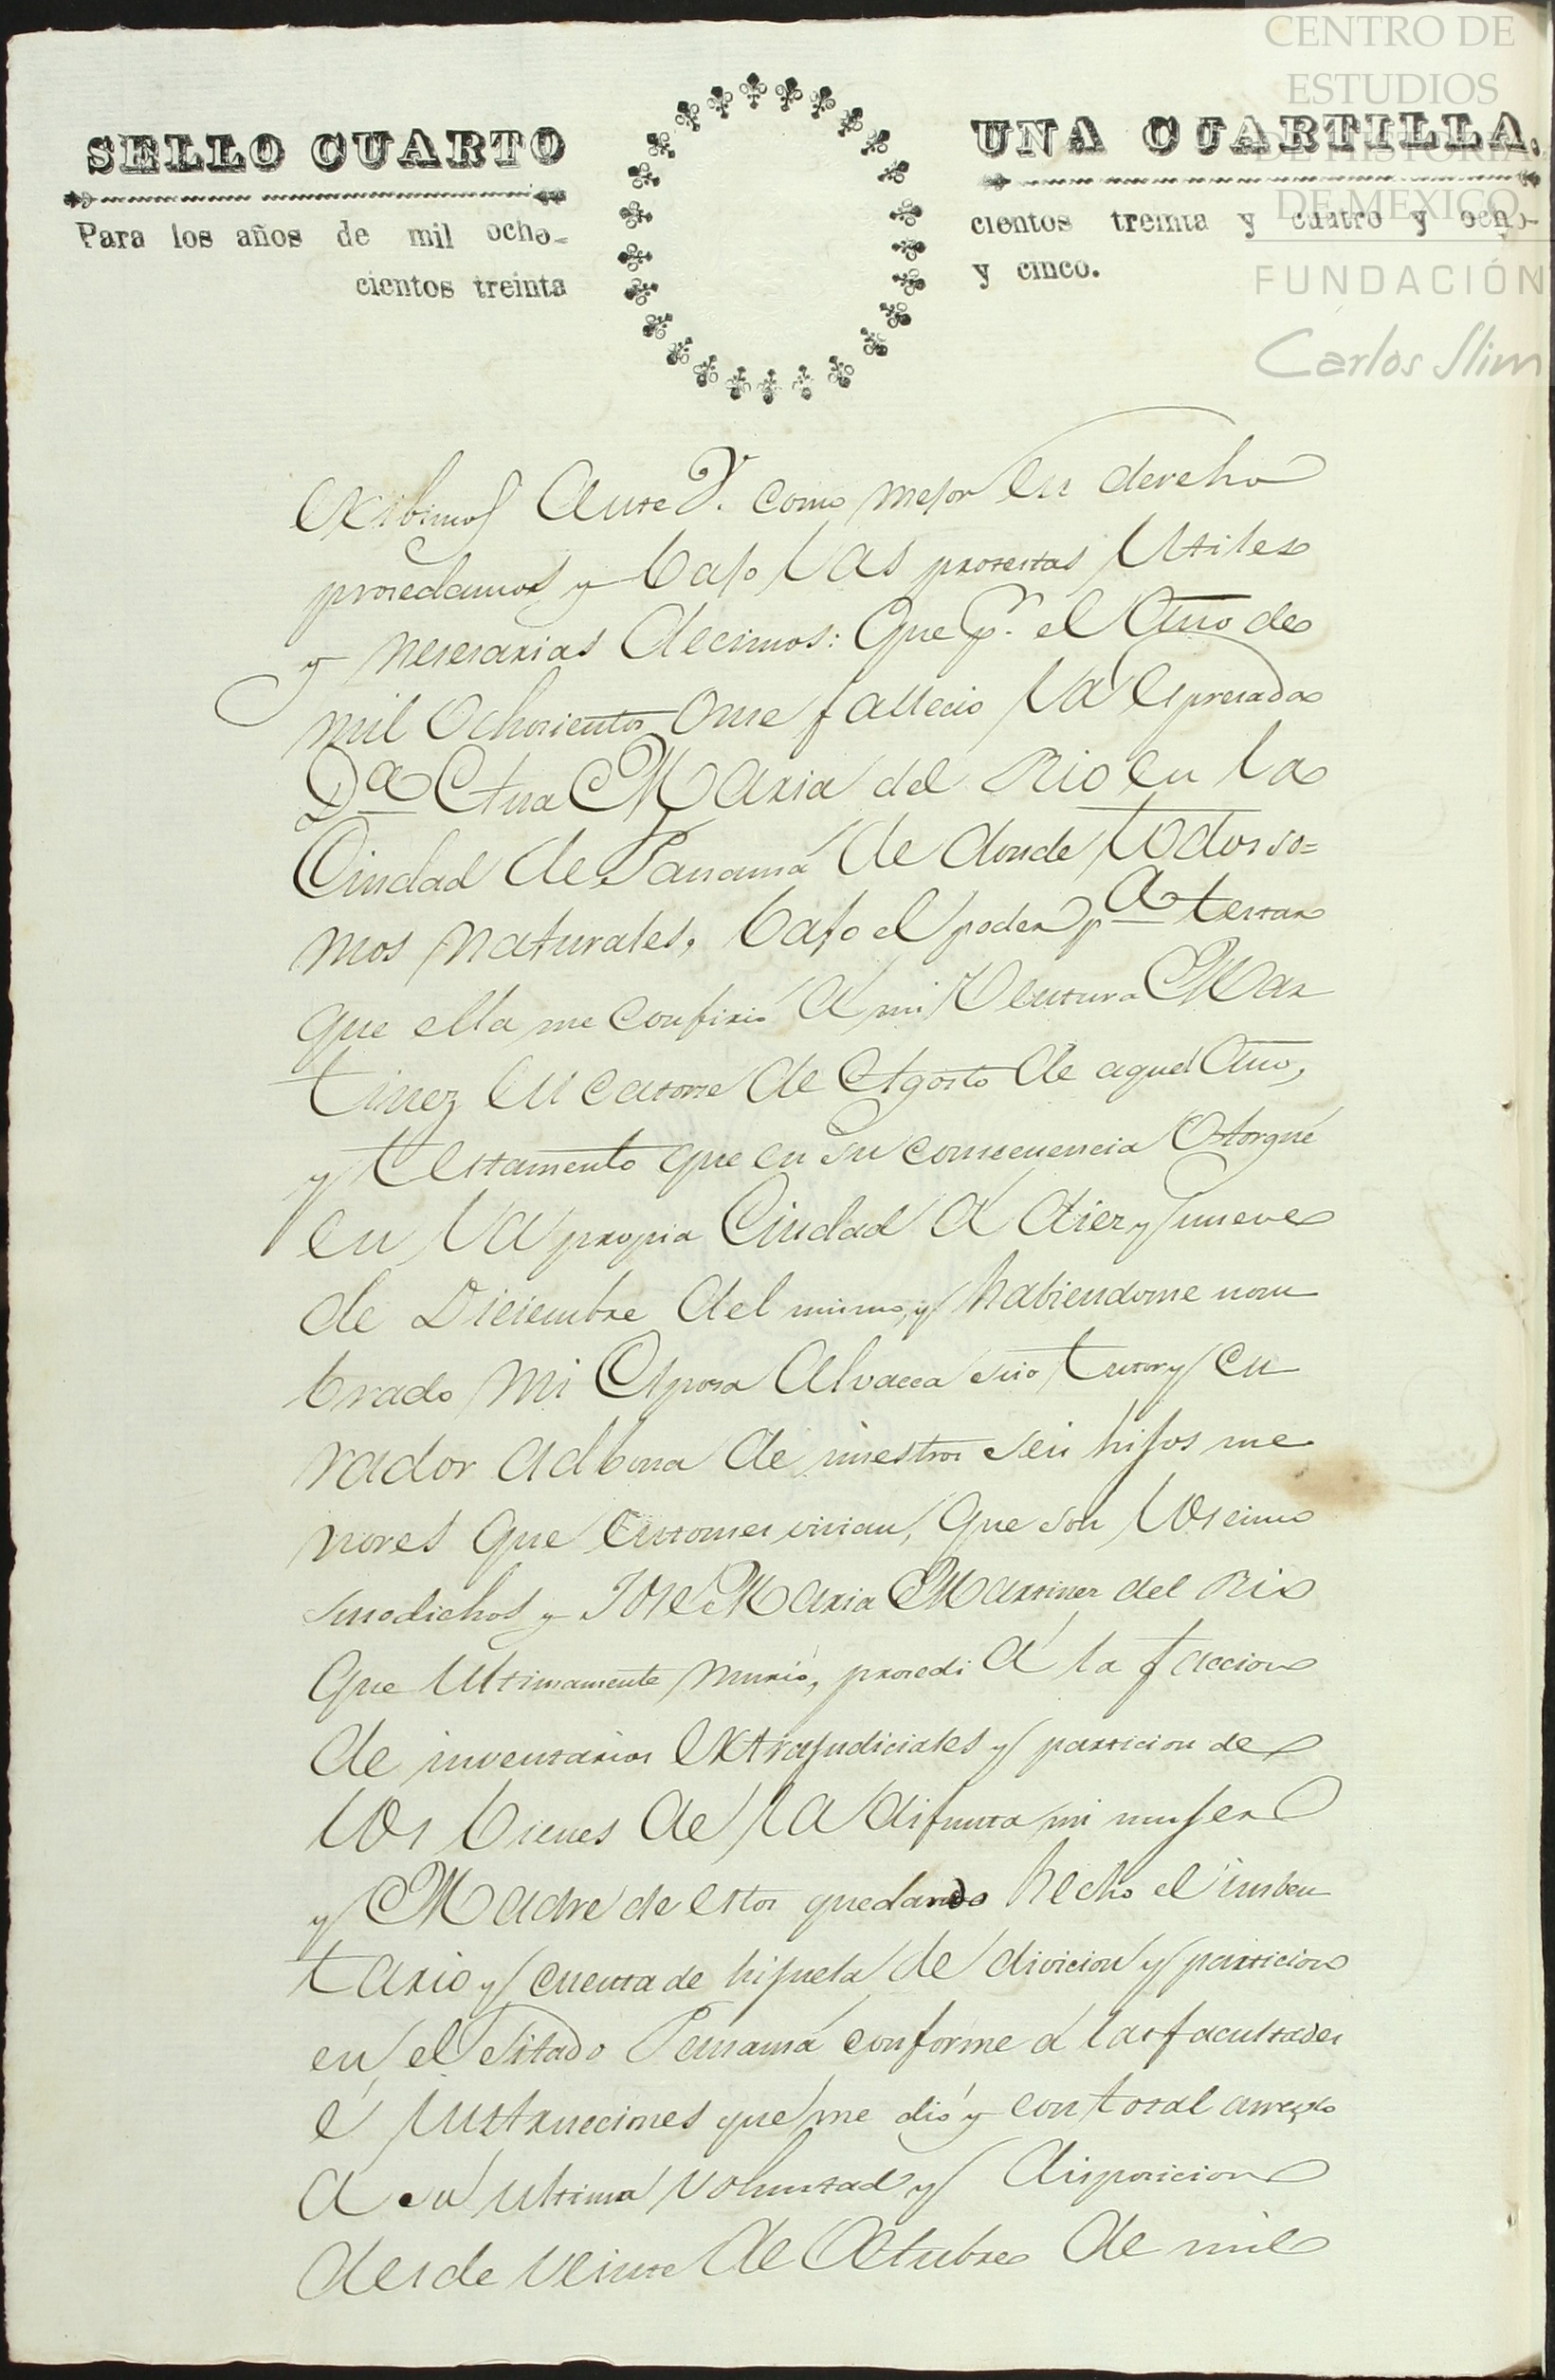 CENTRO DE
ESTUDIOS
DE HISTORIA
DE MEXICO
FUNDACIÓN
Carlos Slim
SELLO CUARTO
UNA CUARTILLA.
Para los años de mil ocho-
cientos treinta
cientos treinta y cuatro y ocho-
y cinco.
exibimos Ante V. como mejor en dereho
prosedamos y bajo las protestas Utiles
y neserarias decimos: Que pr. el Año de
mil Ochosientos Onse fallecio la Espresada
Da Ana Maria del Rio en la
Ciudad de Panamá de donde todos so=
mos naturales, bajo el poder pa testar
que ella me confirió á mi Ventura Mar
tinez en catorse de Agosto de aquel Año,
y testamento que en su consecuencia Otorgué
en la propia Ciudad á diez y nueve
de Diciembre del mismo, y habiendome nom
brado mi Esposa Alvacea suio tutor y cu
rador adbona de nuestros seis hijos me
nores que Entonses vivian, que son los cinco
susodichos y Jose Maria Martinez del Rio
que Ultimamente murió, prosedi á la faccion
de inventarios extrajudiciales y particion de
los bienes de la difunta mi mujer
y Madre de estos quedando hecho el inben
tario y cuenta de hijuela de divicion y particion
en el Sitado Panamá conforme á las facultades
é instrucciones que me dió y con total arreglo
a su ultima voluntad y disposicion
desde veinte de Octubre de mil